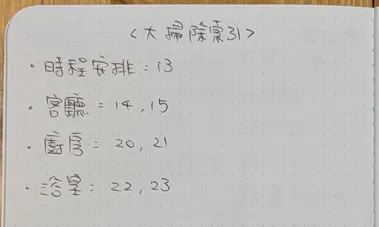 〈大掃除索引〉
・時程安排：13
・客廳：14，15
・廚房：20，21
・浴室：22，23